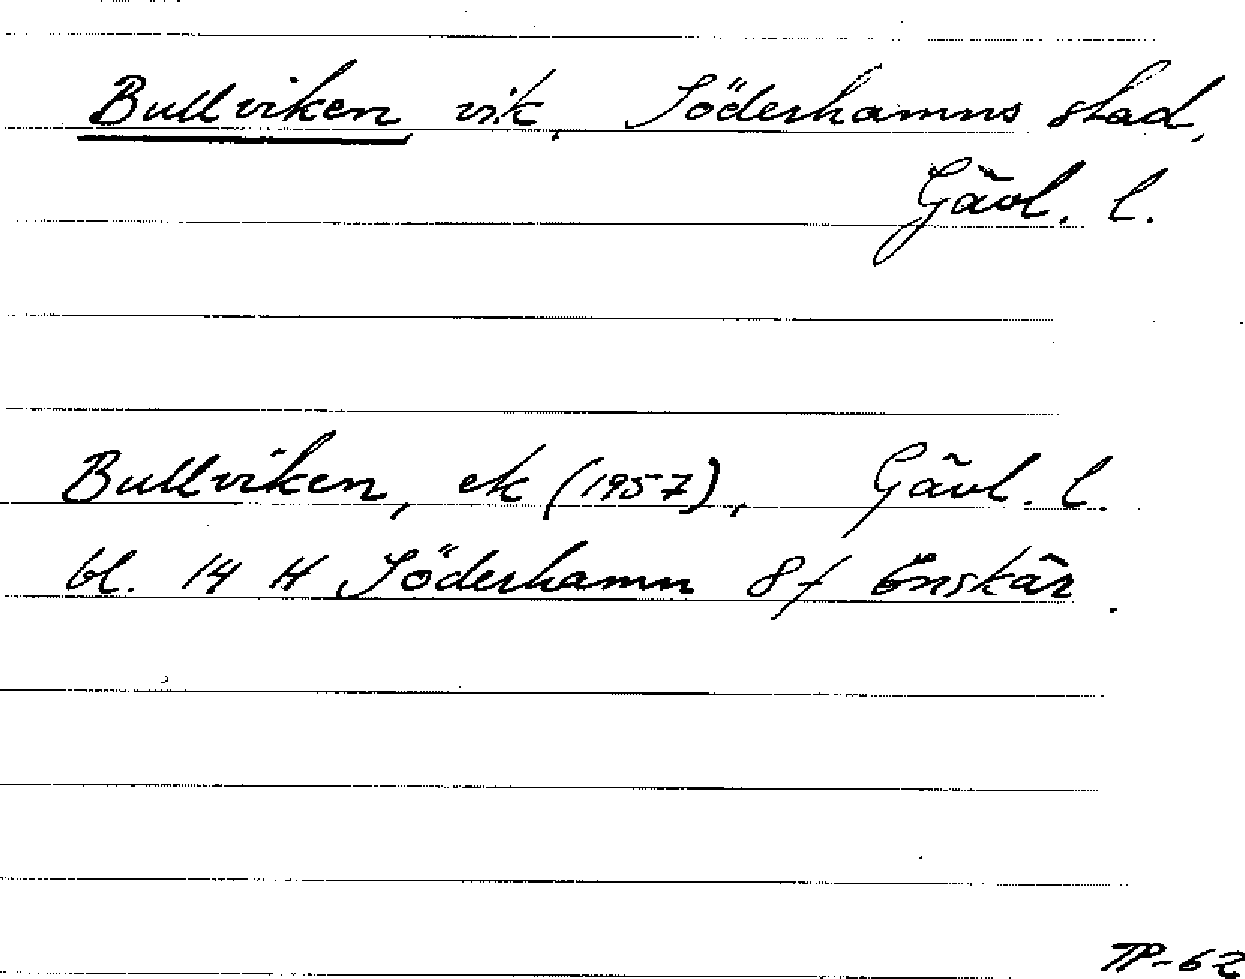 Bullviken, vik, Söderhamns stad,
Gävl. l.
Bullviken, ek (1957), Gävl. l.
bl. 14 H Söderhamn 8f Enskär.
TP-62